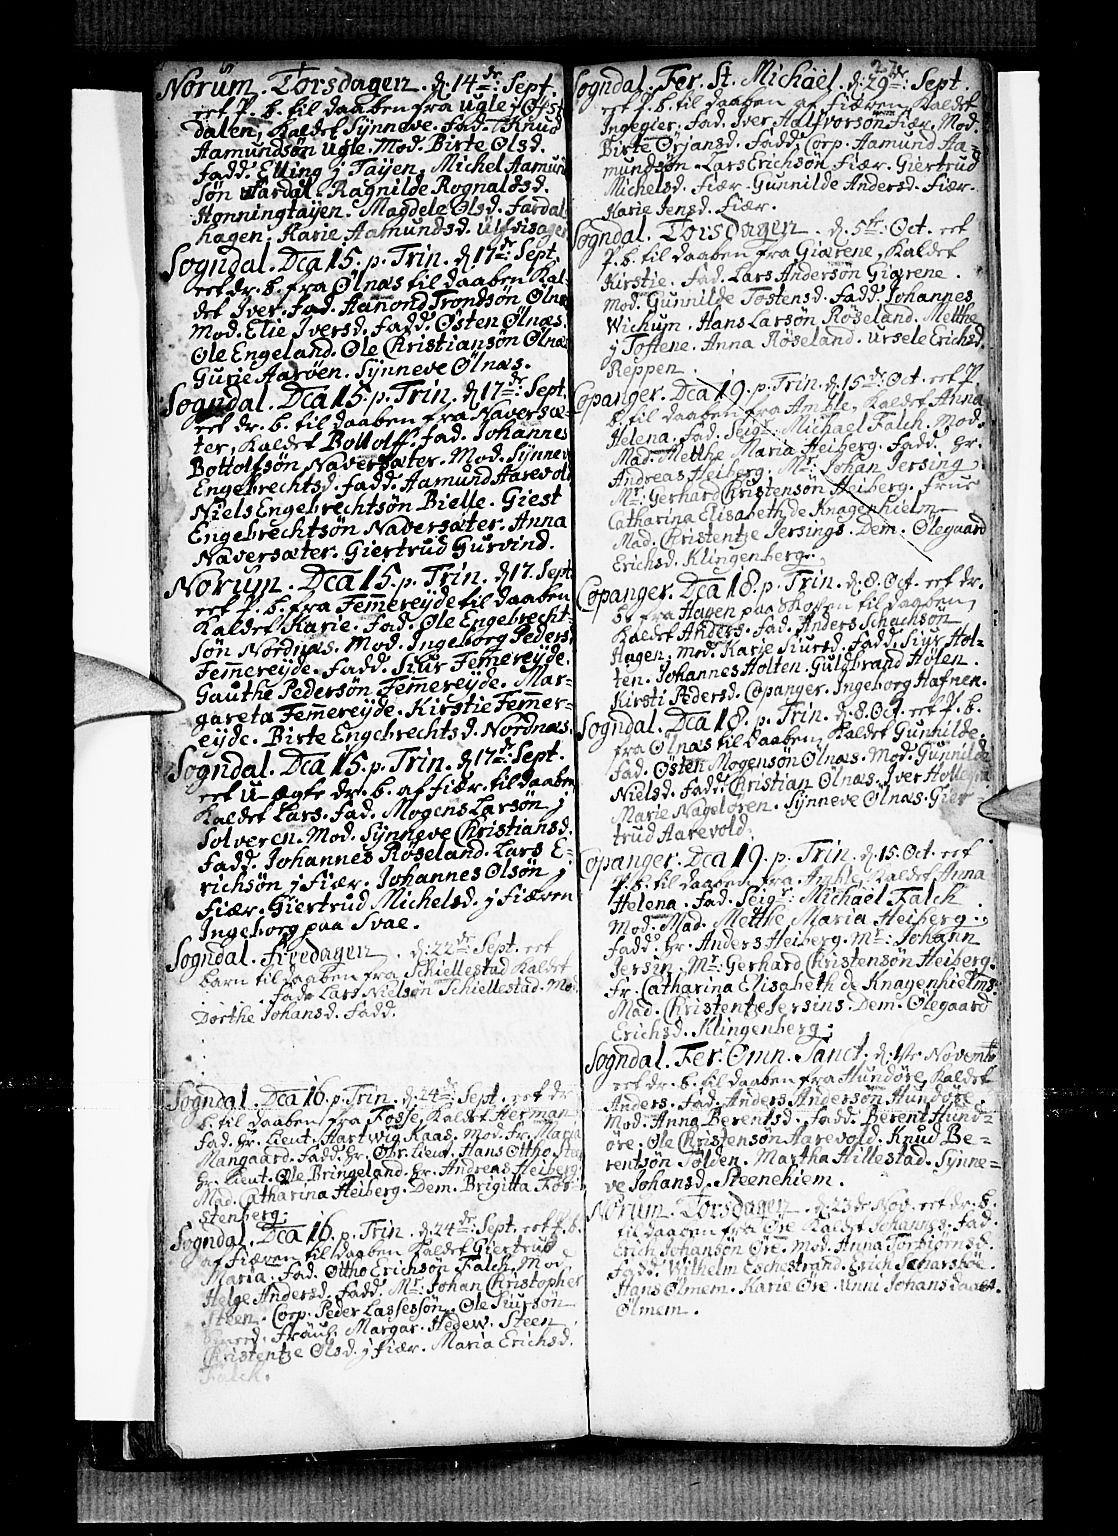 Norum. Torsdagen. d. 14de: Sept.
eet P. b. til daaben fra Ugle i
dalen, kaldet Synneve. Fad. Knud
Aamundsøn Ugle. Mod. Birte Olsd.
Fadd. Elling i Tåÿen, Michel Aamun
søn Fardal. Ragnilde Rognaldsd.
Honningtaÿen. Magdele Olsd. Fardal
hagen. Karie Aamundsd. Ulfsisager
Sogndal. Dca 15. p. Trin. d. 17de: Sept.
eet dr. b. fra Ølnæs til daaben kal-
det Iver. Fad. Aamond Trondsøn Ølnæ
Mod. Elie Iversd. Fadd. Østen Ølnæs.
Ole Engeland. Ole Christiansøn Ølnæ
Gurie Aarøen. Synneve Ølnæs.
Sogndal. Dca 15. p. Trin. d. 17de: Sept.
eet dr. b. til daaben fra Naversæ-
ter, kaldet Bottolff. Fad. Johannes
Bottolfsøn Naversæter. Mod. Synnev
Engebrechtsd. Fadd. Aamund Aarevol
Niels Engebrechtsøn Bielle. Giest
Engebrechtsøn Naversæter. Anna
Naversæter. Giertrud Gurvind.
Norum. Dca 15. p. Trin. d. 17. Sept
eet P. b. fra Femereÿde til daaben
kaldet Karie. Fad. Ole Engebrecht-
søn Nordnæs. Mod. Ingeborg Peders
Femereÿde. Fadd. Siur Femereÿde.
Gauthe Pedersøn Femereÿde. Mar-
gareta Femereÿde. Kirstie Femer-
eÿde. Birte Engebrechtsd. Nordnæs.
Sogndal. Dca 15. p. Trin. d. 17de: Sept.
eet u-ægte dr. b. af Fiær. til daaben
kaldet Lars. Fad. Mogens Larsøn i
Solveren. Mod. Synneve Christiansd.
Fadd. Johannes Røseland. Lars E-
richsøn i Fiær. Johannes Olsøn i
Fiær. Giertrud Michelsd. i Fiæren
Ingeborg paa Svae.
Sogndal. Fredagen. d. 22de: Sept. eet
barn til daaben fra Schiellestad kaldet
Fad. Lars Nielsøn Schiellestad. Mod.
Dorthe Johansd. Fadd.
Sogndal. Dca 16. p. Trin. d. 24de: Sept. eet dr
b. til daaben fra Fosse, kaldet Herman
Fad. Hr. Lieut. Hartwig Kaas. Mod. Fr. Maria
Mangaard. Fadd. Hr. Obr. Lieut. Hans Ottho
Hr. Lieut. Ole Bringeland. Hr. Andreas Heiberg.
Mad. Catharina Heiberg. Dem. Brigitta For-
stenberg.
Sogndal. Dca 16. p. Trin. d. 24de: Sept. eet P. b.
af Fiæren til daaben kaldet Giertrud
Maria. Fad. Ottho Erichsøn Falch. Mod.
Helge Andersd. Fadd. Mr: Johan Christopher
Steen. Corp. Peder Lassessøn. Ole Siursøn
Fraül. Margar. Hedew. Steen
Christentze Olsd. i Fiær. Maria Erichsd.
Falch.
Sogndal. Fer. St. Michaël. d. 29de: Sept
eet P. b. til daaben af Fiæren, kaldet
Ingegier. Fad. Iver Aalfvorsøn Fiær. Mod.
Birte Ørjansd. Fadd. Corp. Aamund Aa-
mundsøn. Lars Erichsøn Fiær. Giertrud
Michelsd. Fiær. Gunnilde Andersd. Fiær.
Karie Jensd. Fiær.
Sogndal. Torsdagen. d. 5te. Oct. eet
P. b. til daaben fra Giærene, kaldet
Kirstie. Fad. Lars Andersøn Giærene.
Mod. Gunnilde Tostensd. Fadd. Johannes
Wichum. Hans Larsøn Røseland. Metthe
i Toftene. Anna Røseland. Ursele Erichsd.
Reppen.
Copanger. Dca 19. p. Trin. d. 15de. Oct. eet P.
b. til daaben fra Amble, kaldet Anna
Helena. Fad. Seigr. Michael Falch. Mod.
Mad. Metthe Maria Heiberg. Fadd. Hr.
Andreas Heiberg. Mr: Johan Jersing
Mr: Gerhard Christensøn Heiberg. Frue
Catharina Elisabeth de Knagenhielm.
Mad. Christentze Jersings. Dem. Olegaard
Erichsd. Klingenberg.
Copanger. Dca 18. p. Trin. d. 8. Oct. eet dr.
b. fra Hagen paa Skoffen til daaben,
kaldet Anders. Fad. Anders Schacksøn
Hagen. Mod. Karie Siursd. Fadd. Siur Hol-
ten. Johannes Holten. Guldbrand Høÿen.
Kirsti Pedersd. Copanger. Ingeborg Hafnen.
Sogndal. Dca 18. p. Trin. d. 8. Oct. eet P. b.
fra Ølnæs til daaben, kaldet Gunhilde.
Fad. Østen Mogensøn Ølnæs. Mod. Gunnilde
Nielsd. Fadd. Christian Ølnæs. Iver Hollegia
Marie Nagløren. Synneve Ølnæs. Gier-
trud Aarevold.
Copanger. Dca 19. p. Trin. d. 15. Oct. eet
P. b. til daaben fra Amble, kaldet Anna
Helena. Fad. Seigr: Michaël Falch
Mod. Mad. Metthe Maria Heiberg.
Fadd. Hr. Anders Heiberg. Mr: Johann
Jersin. Mr: Gerhard Christensøn Heiberg.
Fr. Catharina Elisabeth de Knagenhielms.
Mad. Christentze Jersins. Dem. Olegaard
Erichsd. Klingenberg.
Sogndal. Fer. Omn. Sanct. d. 1ste Novembr
eet dr. b. til daaben fra Hundøre kaldet
Anders. Fad. Anders Andersøn Hundøre.
Mod. Anna Berentsd. Fadd. Berent Hund-
øre. Ole Christensøn Aarevold. Knud Be-
rentsøn Sølden. Martha Hillestad. Synne-
ve Johansd. Steenehiem.
Norum. Torsdagen. d. 23de Nov. eet dr. b.
til daaben fra Øre kaldet Johannes. Fad.
Erich Johansøn Øre. Mod. Anna Torbiørnsd.
Fadd. Wilhelm Eschestrand. Erich
Hans Olmem. Karie Øre. Unni Johansdaatt.
Olmem.